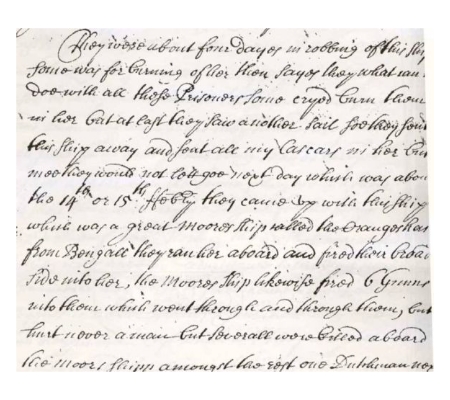 They were about four dayes in robbing of this Ship
some was for burning of her then sayes they what can
doe with all those Prisoners some cryed burn them
in her but at last they saw another sail soe they sent
this ship away and sent all my Lascars in her but
mee they would not lett goe next day which was about
the 14th or 15th ffebry they came up with this ship
which was a great Moores ship called the
from Bengall they ran her aboard and fired their broad
side into her, the Moores ship likewise fired 6 Gunns
into them which went through and through them, but
hurt never a man but severall were killed aboard
the Moors shipp amongst the rest one Dutchman